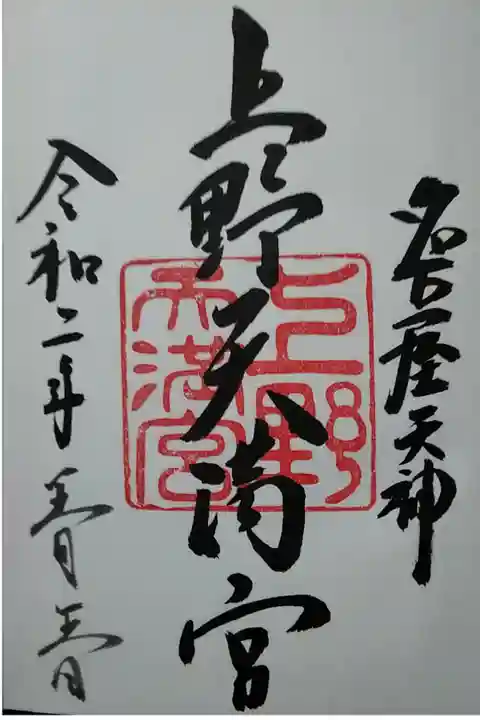 名古屋天神
上野天満宮
上野
天満宮
令和二年